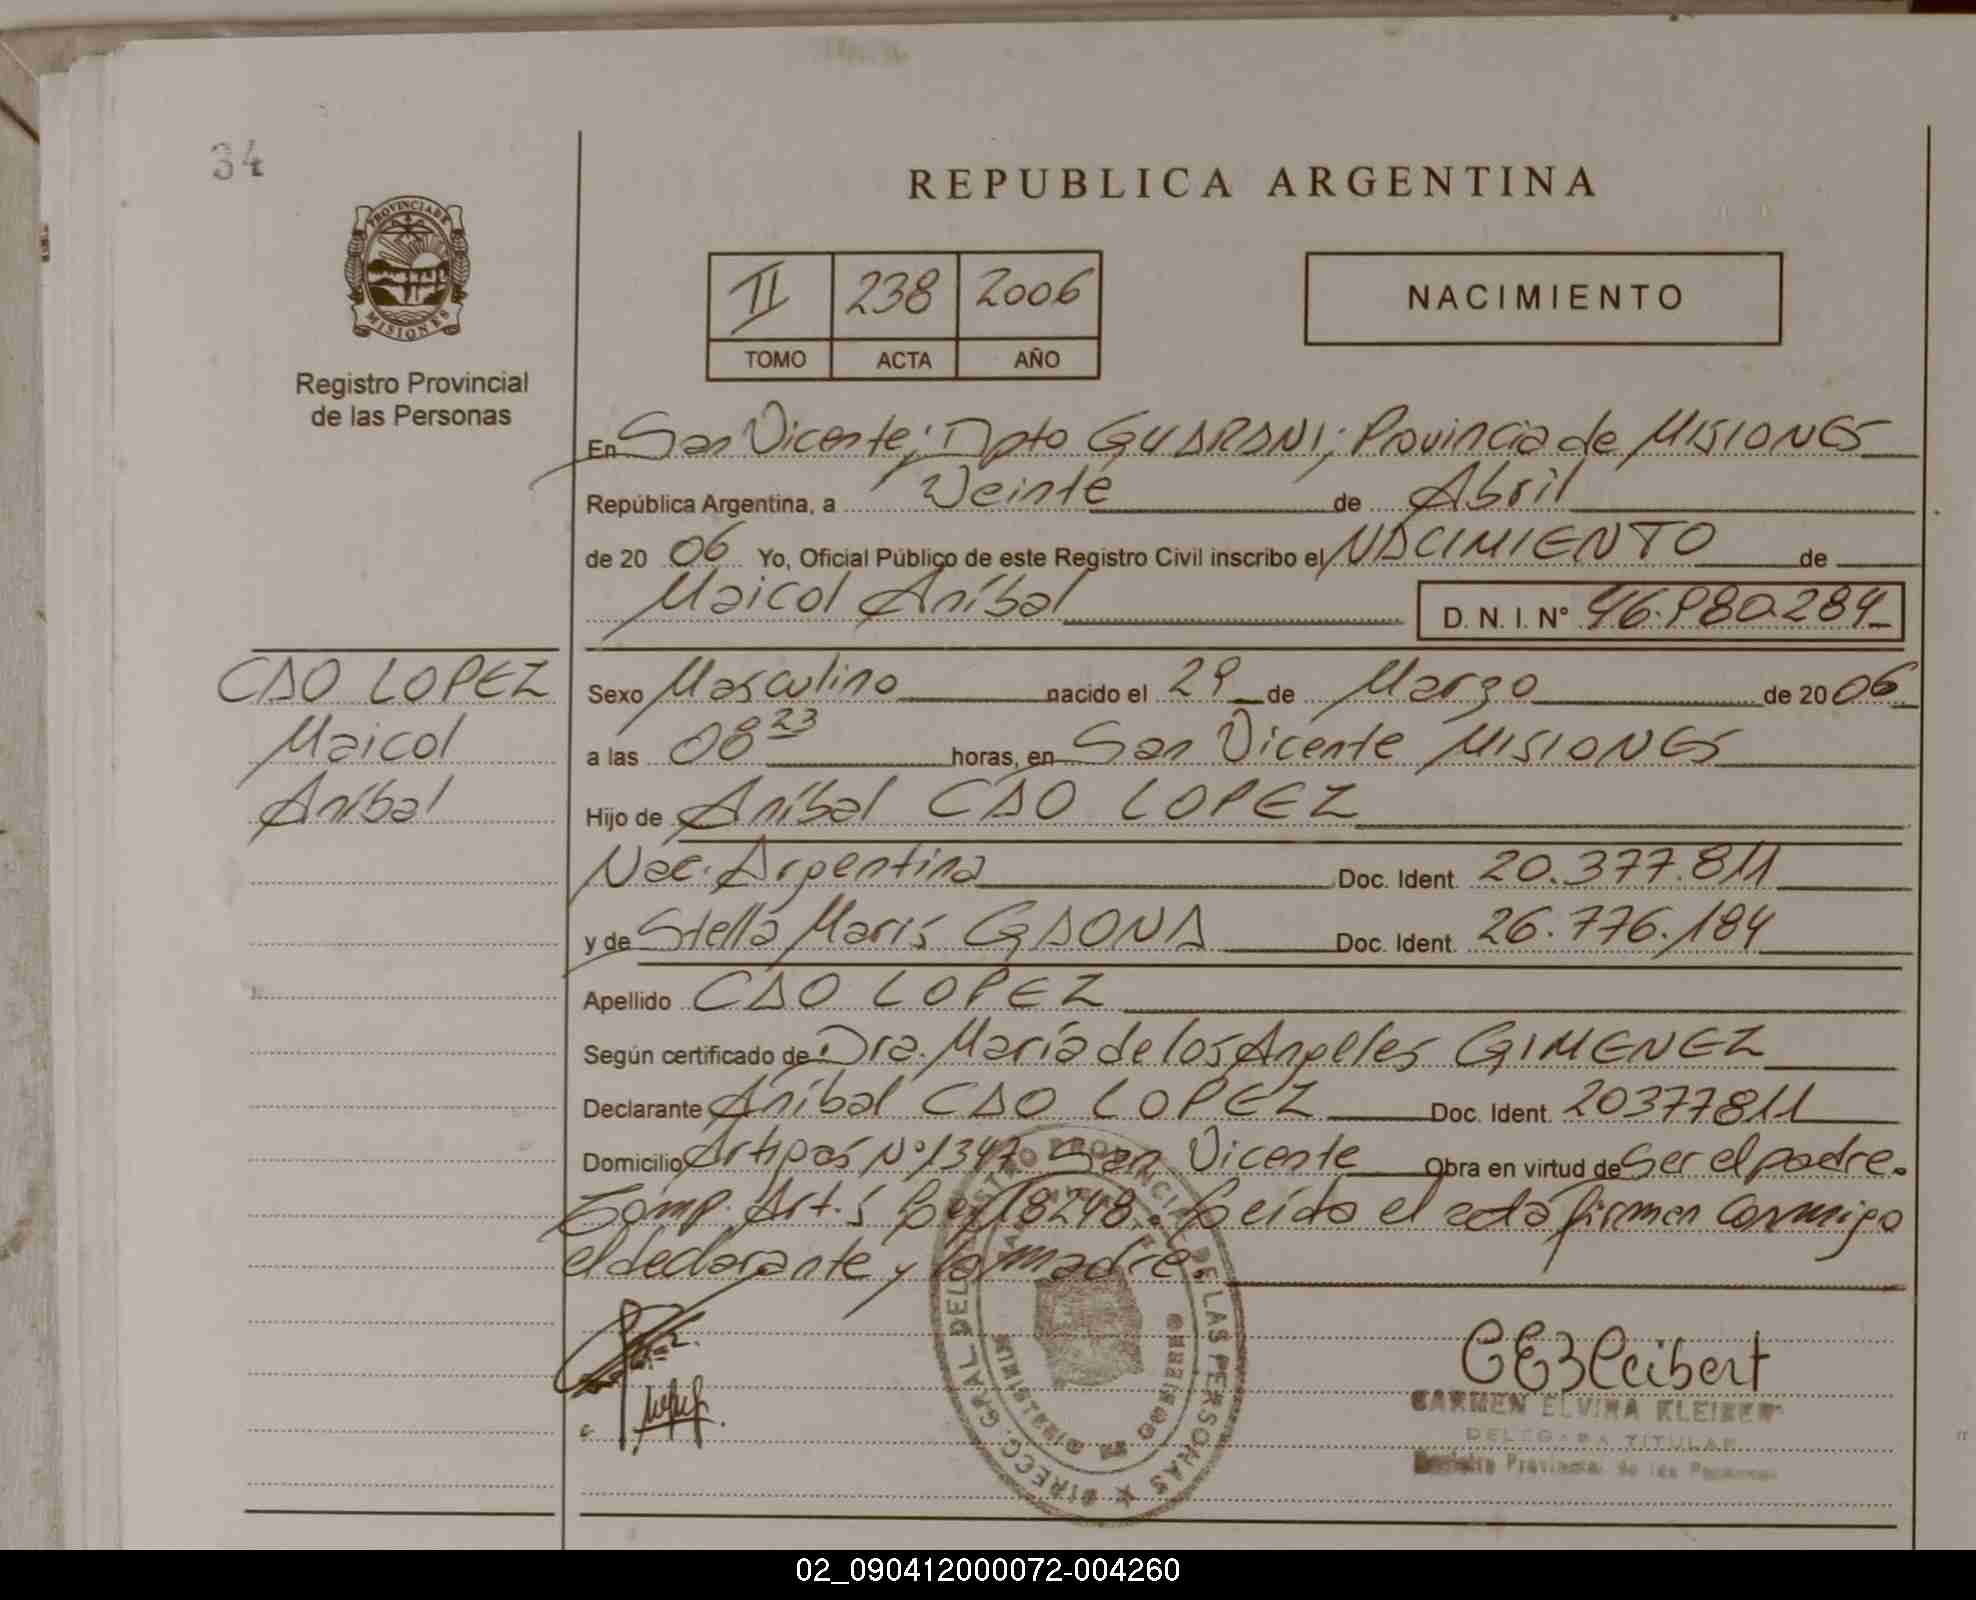 34
REPUBLICA ARGENTINA
PROVINCIA DE
MISIONES
Registro Provincial
de las Personas
II 238 2006
TOMO ACTA AÑO
NACIMIENTO
En San Vicente; Dpto GUARANI; Provincia de MISIONES
República Argentina, a Veinte de Abril
de 20 06 Yo, Oficial Público de este Registro Civil inscribo el NACIMIENTO de
Maicol Aníbal D. N. I. Nº 46.980.284
CAO LOPEZ
Maicol
Aníbal
Sexo Masculino nacido el 29 de Marzo de 20 06
a las 08 23 horas, en San Vicente MISIONES
Hijo de Aníbal CAO LOPEZ
Nac. Argentina Doc. Ident. 20.377.811
y de Stella Maris GAONA Doc. Ident. 26.776.184
Apellido CAO LOPEZ
Según certificado de Dra. María de los Angeles GIMENEZ
Declarante Aníbal CAO LOPEZ Doc. Ident. 20377811
Domicilio Artigas Nº 1347 San Vicente Obra en virtud de Ser el padre.
Comp. Art. 5 Ley 18248. Leída el acta firman conmigo
el declarante y la madre.
CEKleibert
CARMEN ELVIRA
DELEGADA TITULAR
Registro Provincial de las Personas
DIRECC. GRAL. DEL REGISTRO PROVINCIAL DE LAS PERSONAS
02_090412000072-004260